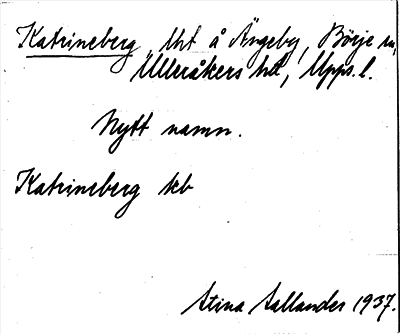 Katrineberg, lht å Ängeby, Börje sn,
Ulleråkers hd, Upps. l.
Nytt namn.
Katrineberg
Stina Sallander 1937.